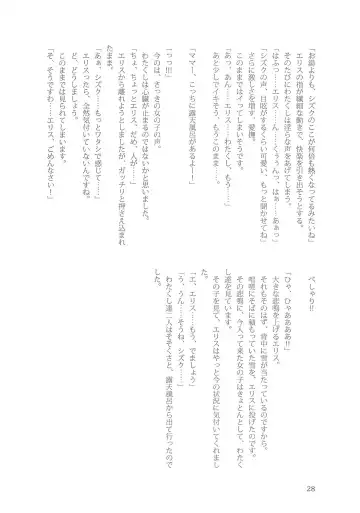 「お湯よりも、シズクのここが何倍も熱くなってるみたいね」
エリスの指が繊細な動きで、快楽を引き出そうとする。
そのたびにわたくしは淫らな声をあげてしまう。
「はふっ……エリス……ん……くぅぅんっ、はぁ……あぁっ」
「シズクの声、目眩がするくらい可愛い、もっと聞かせてね」
さらに激しさを増す、愛撫。
このままではイってしまいそうです。
「あっ、あん……エリス……わたくし、もう……」
あと少しでイキそう、もうこのまま……。
「ママー、こっちに露天風呂があるよー！」
「っっ!!!」
今のは、さっきの女の子の声。
わたくしは心臓が止まるのではないかと思いました。
「ちょ、ちょっとエリス、だめ、人が……」
エリスから離れようとしましたが、ガッチリと押さえ込まれ
たまま。
「あぁ、シズク……もっとワタシで感じて……」
エリスったら、全然気付いていないんですね。
このままでは見られてしまいます。
「そ、そうですわ……エリス、ごめんなさい！」
べしゃり!!
「ひゃ、ひゃああああ!!」
大きな悲鳴を上げるエリス。
それもそのはず、背中に雪が当たっているのですから。
咄嗟にそばに積もっていた雪を、エリスに投げたのです。
その悲鳴に、今入って来た女の子はきょとんとして、わたく
し達を見ています。
その子を見て、エリスはやっと今の状況に気付いてくれまし
た。
「エ、エリス……もう、でましょう」
「う、うん……そうね、シズク……」
わたくし達二人はそそくさと、露天風呂から出て行ったので
した。
28